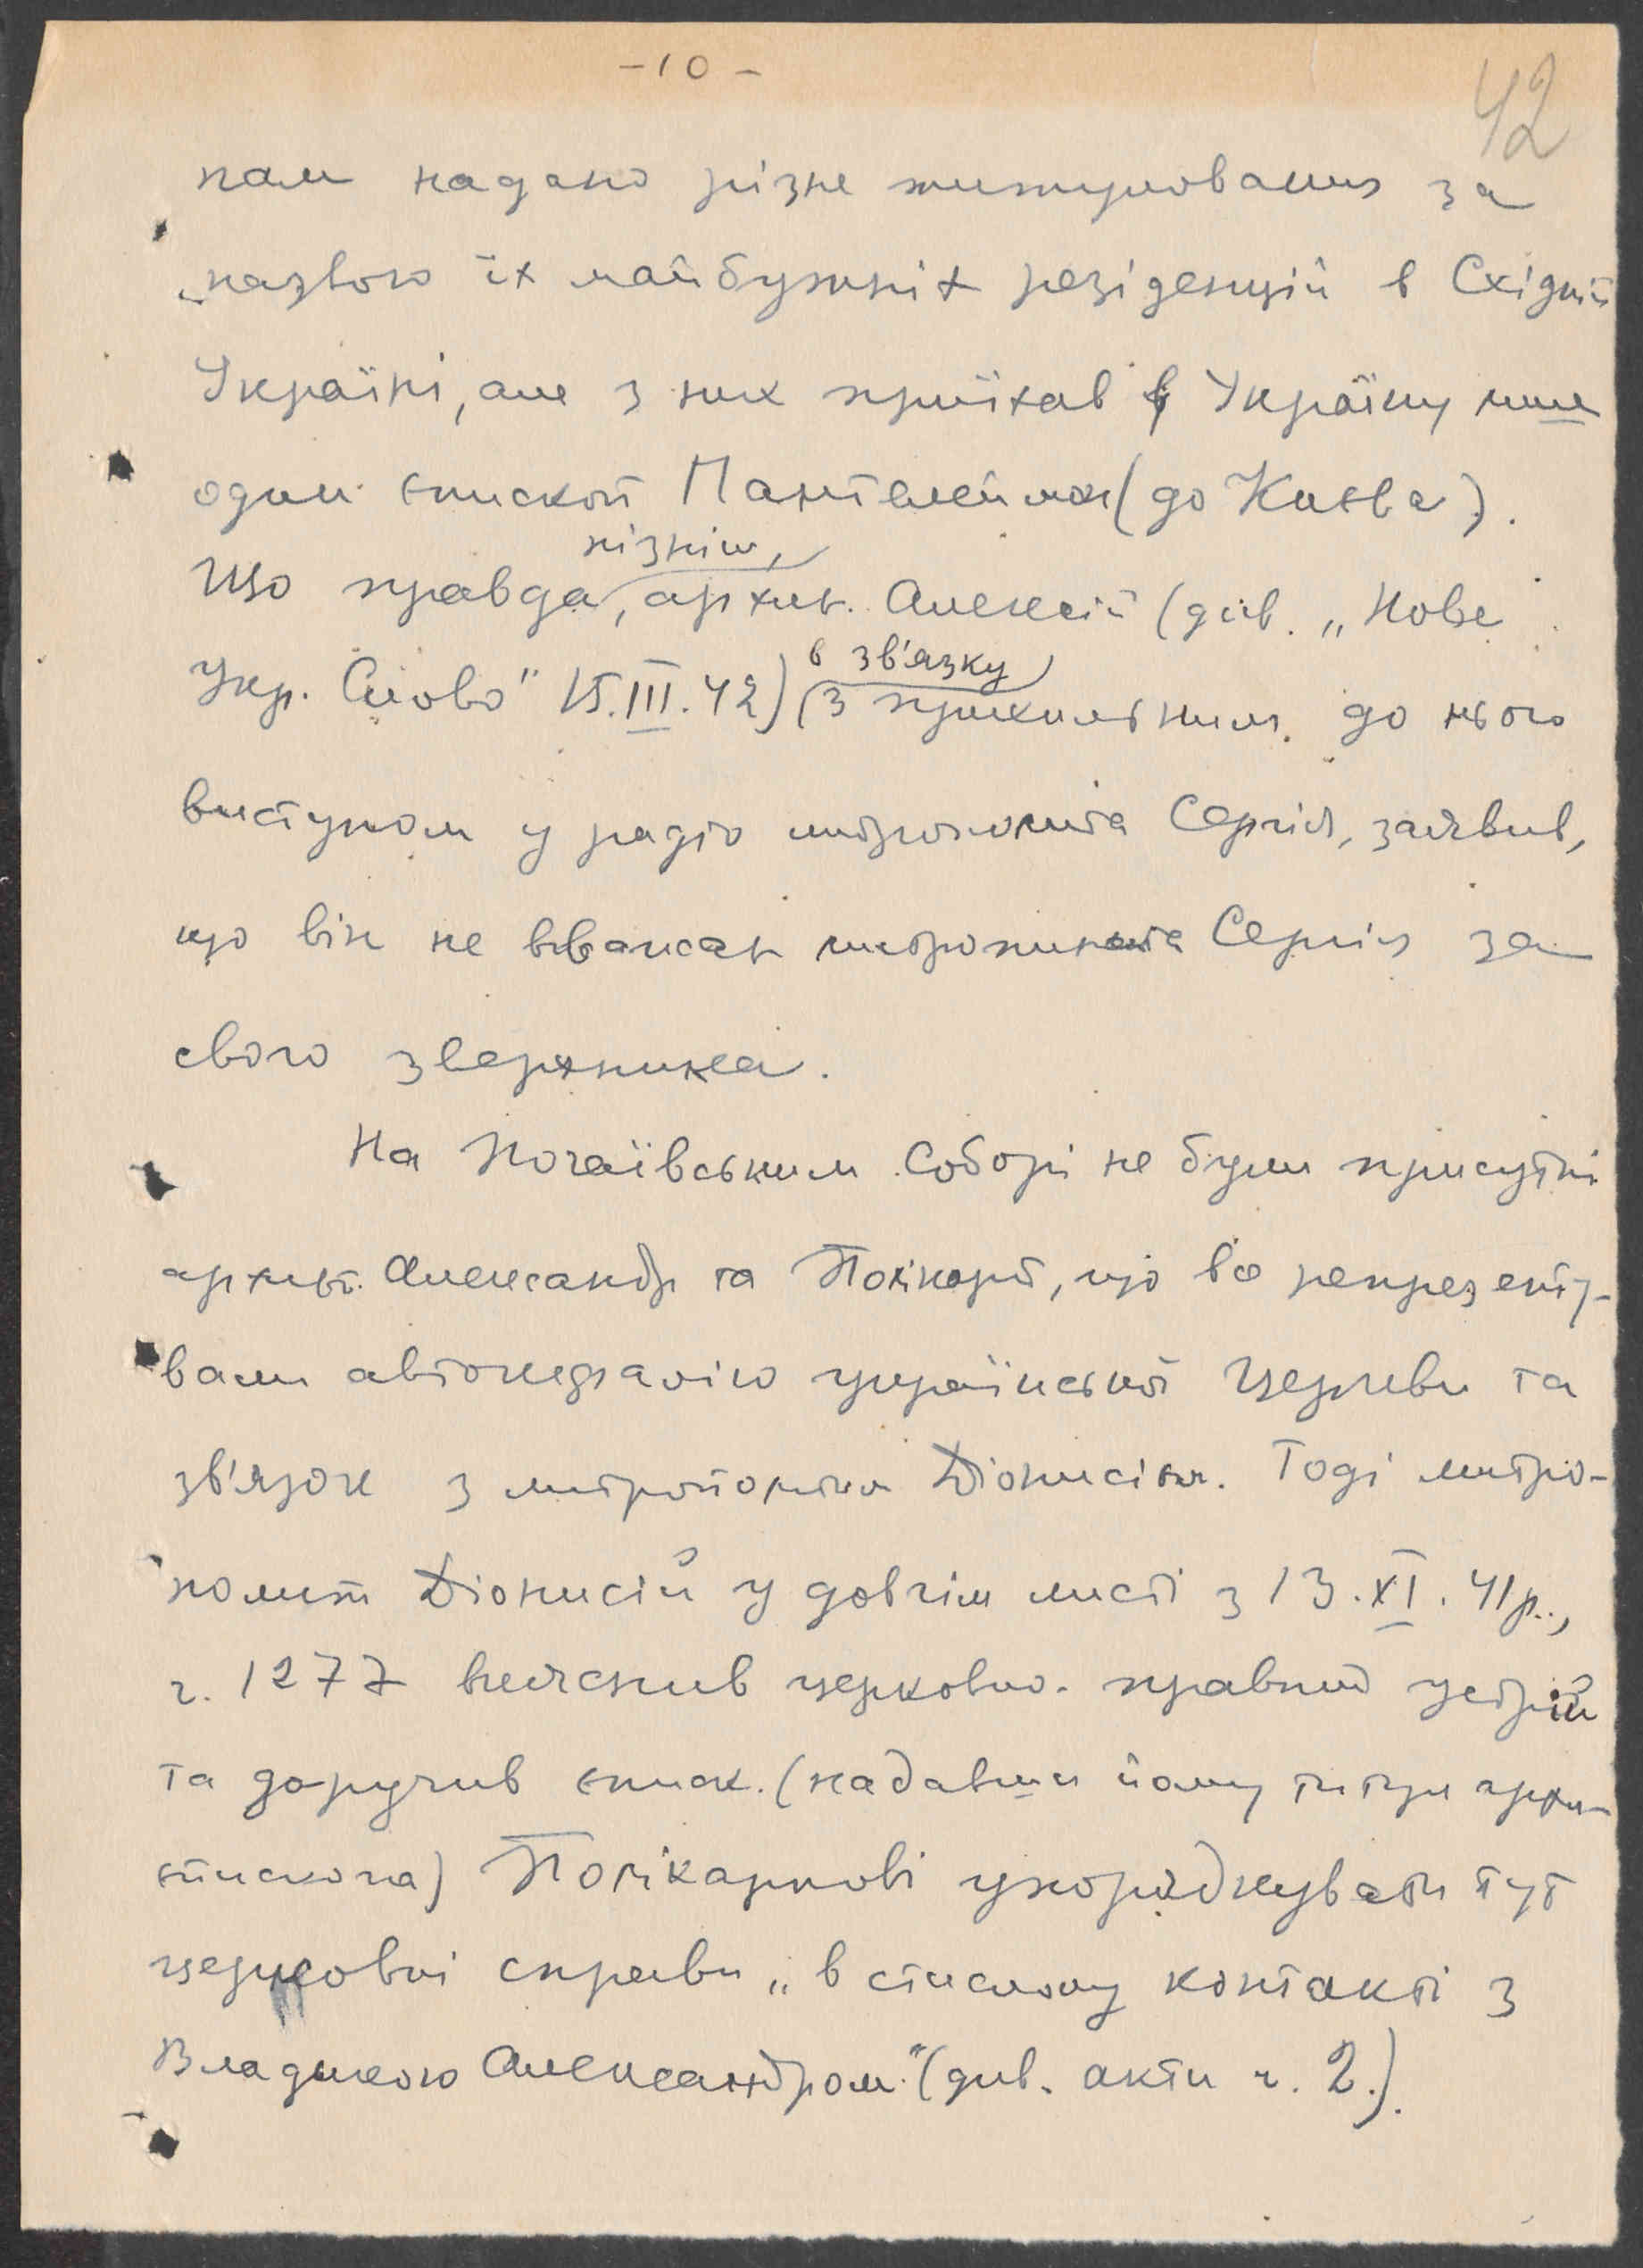 -10-
42
пам надано різне титуловання за
„назвою їх майбутніх резіденцій в Східній
Україні, але з них приїхав в Україну лише
один єпископ Пантелеймон (до Києва).
пізніш,
Що правда, архиєп. Алексій (див. „Нове
в зв'язку
Укр. Слово" 15.III.42) з прихильним до нього
виступом у радіо митрополита Сергія, заявив,
що він не вважає митрополита Сергія за
свого зверхника.
На Почаївським Соборі не були присутні
архиєп. Александр та Полікарп, що все репрезенту-
вали автокефалію української Церкви та
зв'язок з митрополитом Діонисієм. Тоді митро-
полит Діонисій у довгім листі з 13.XI.41р.,
ч. 1277 вияснив церковно-правний устрій
та доручив єписк. (надавши йому титул архи-
єпископа) Полікарпові упорядкувати тут
церковні справи „в стислому контакті з
Владикою Александром" (див. акти ч. 2.).